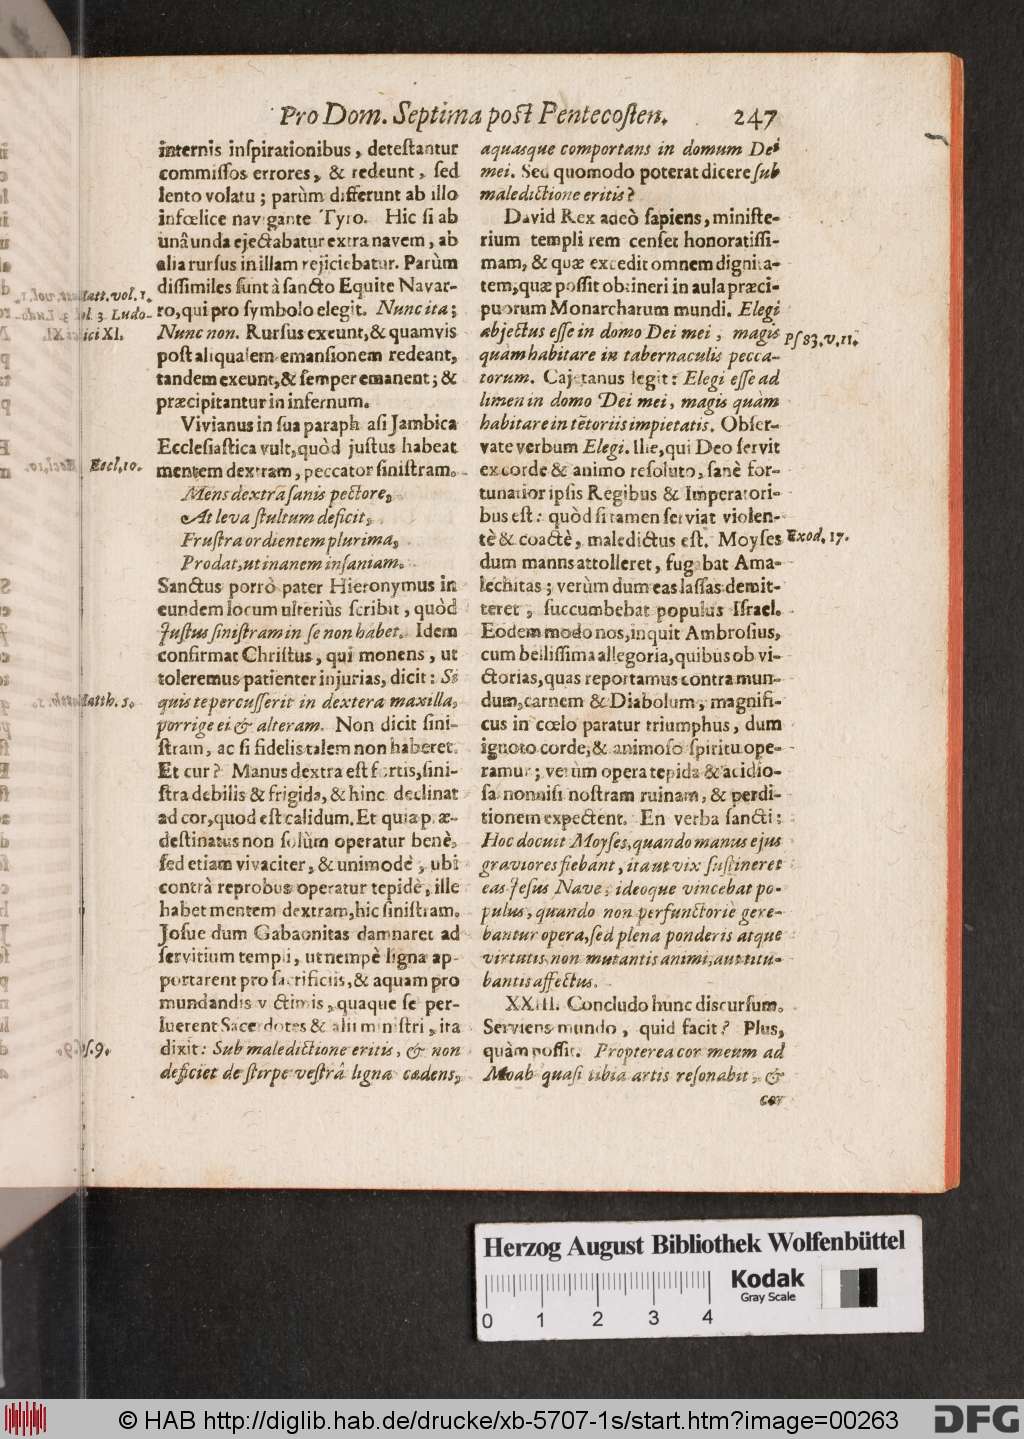 Pro Dom. Septima post Pentecosten. 247
internis inspirationibus, detestantur
commissos errores, & redeunt, sed
lento volatu; parùm differunt ab illo
infœlice navigante Tyro. Hic si ab
unâ unda ejectabatur extra navem, ab
alia rursus in illam rejiciebatur. Parùm
dissimiles sunt à sancto Equite Navar-
ro, qui pro symbolo elegit. Nunc ita;
Nunc non. Rursus exeunt, & quamvis
post aliqualem emansionem redeant,
tandem exeunt, & semper emanent; &
præcipitantur in infernum.
Vivianus in sua paraphrasi Jambica
Ecclesiastica vult, quòd justus habeat
mentem dextram, peccator sinistram.
Mens dextra sanis pectore,
At leva stultum deficit,
Frustra ordientem plurima,
Prodat, ut inanem insaniam.
Sanctus porrò pater Hieronymus in
eundem locum ulteriùs scribit, quòd
Justus sinistram in se non habet. Idem
confirmat Christus, qui monens, ut
toleremus patienter injurias, dicit: Si
quis te percusserit in dextera maxilla,
porrige ei & alteram. Non dicit sini-
stram, ac si fidelis talem non haberet.
Et cur? Manus dextra est fortis, sini-
stra debilis & frigida, & hinc declinat
ad cor, quod est calidum. Et quia præ-
destinatus non solùm operatur benè,
sed etiam vivaciter, & unimodè, ubi
contrà reprobus operatur tepidè, ille
habet mentem dextram, hic sinistram.
Josue dum Gabaonitas damnaret ad
servitium templi, ut nempè ligna ap-
portarent pro sacrificiis, & aquam pro
mundandis victimis, quaque se per-
luerent Sacerdotes & alii ministri, ita
dixit: Sub maledictione eritis, & non
deficiet de stirpe vestrâ ligna cædens,
Matt. vol. 1.
vol. 3. Ludo-
vici XI.
Eccl. 10.
Matth. 5.
Jos. 9.
aquasque comportans in domum Dei
mei. Sed quomodo poterat dicere sub
maledictione eritis?
David Rex adeò sapiens, ministe-
rium templi rem censet honoratissi-
mam, & quæ excedit omnem dignita-
tem, quæ possit obtineri in aula præci-
puorum Monarcharum mundi. Elegi
abjectus esse in domo Dei mei, magis
quàm habitare in tabernaculis pecca-
torum. Cajetanus legit: Elegi esse ad
limen in domo Dei mei, magis quàm
habitare in tētoriis impietatis. Obser-
vate verbum Elegi. Ille, qui Deo servit
ex corde & animo resoluto, sanè for-
tunatior ipsis Regibus & Imperatori-
bus est: quòd si tamen serviat violen-
tè & coactè, maledictus est. Moyses
dum manus attolleret, fugabat Ama-
lechitas; verùm dum eas lassas demit-
teret, succumbebat populus Israel.
Eodem modo nos, inquit Ambrosius,
cum bellissima allegoria, quibus ob vi-
ctorias, quas reportamus contra mun-
dum, carnem & Diabolum, magnifi-
cus in cœlo paratur triumphus, dum
ignoto corde, & animoso spiritu ope-
ramur; verùm opera tepida & acidio-
sa nonnisi nostram ruinam, & perdi-
tionem expectent. En verba sancti:
Hoc docuit Moyses, quando manus ejus
graviores fiebant, ita ut vix sustineret
eas Jesus Nave; ideoque vincebat po-
pulus, quando non perfunctoriè gere-
bantur opera, sed plena ponderis atque
virtutis, non mutantis animi, aut titu-
bantis affectus.
XXIII. Concludo hunc discursum.
Serviens mundo, quid facit? Plus,
quàm possit. Propterea cor meum ad
Moab quasi tibia artis resonabit, &
cor
Ps 83. v. 11.
Exod. 17.
Herzog August Bibliothek Wolfenbüttel
Kodak
Gray Scale
0 1 2 3 4
© HAB http://diglib.hab.de/drucke/xb-5707-1s/start.htm?image=00263
DFG